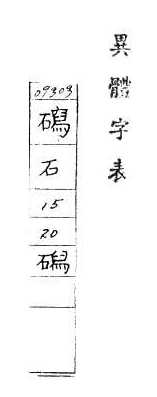 異體字表
09303
石
15
20